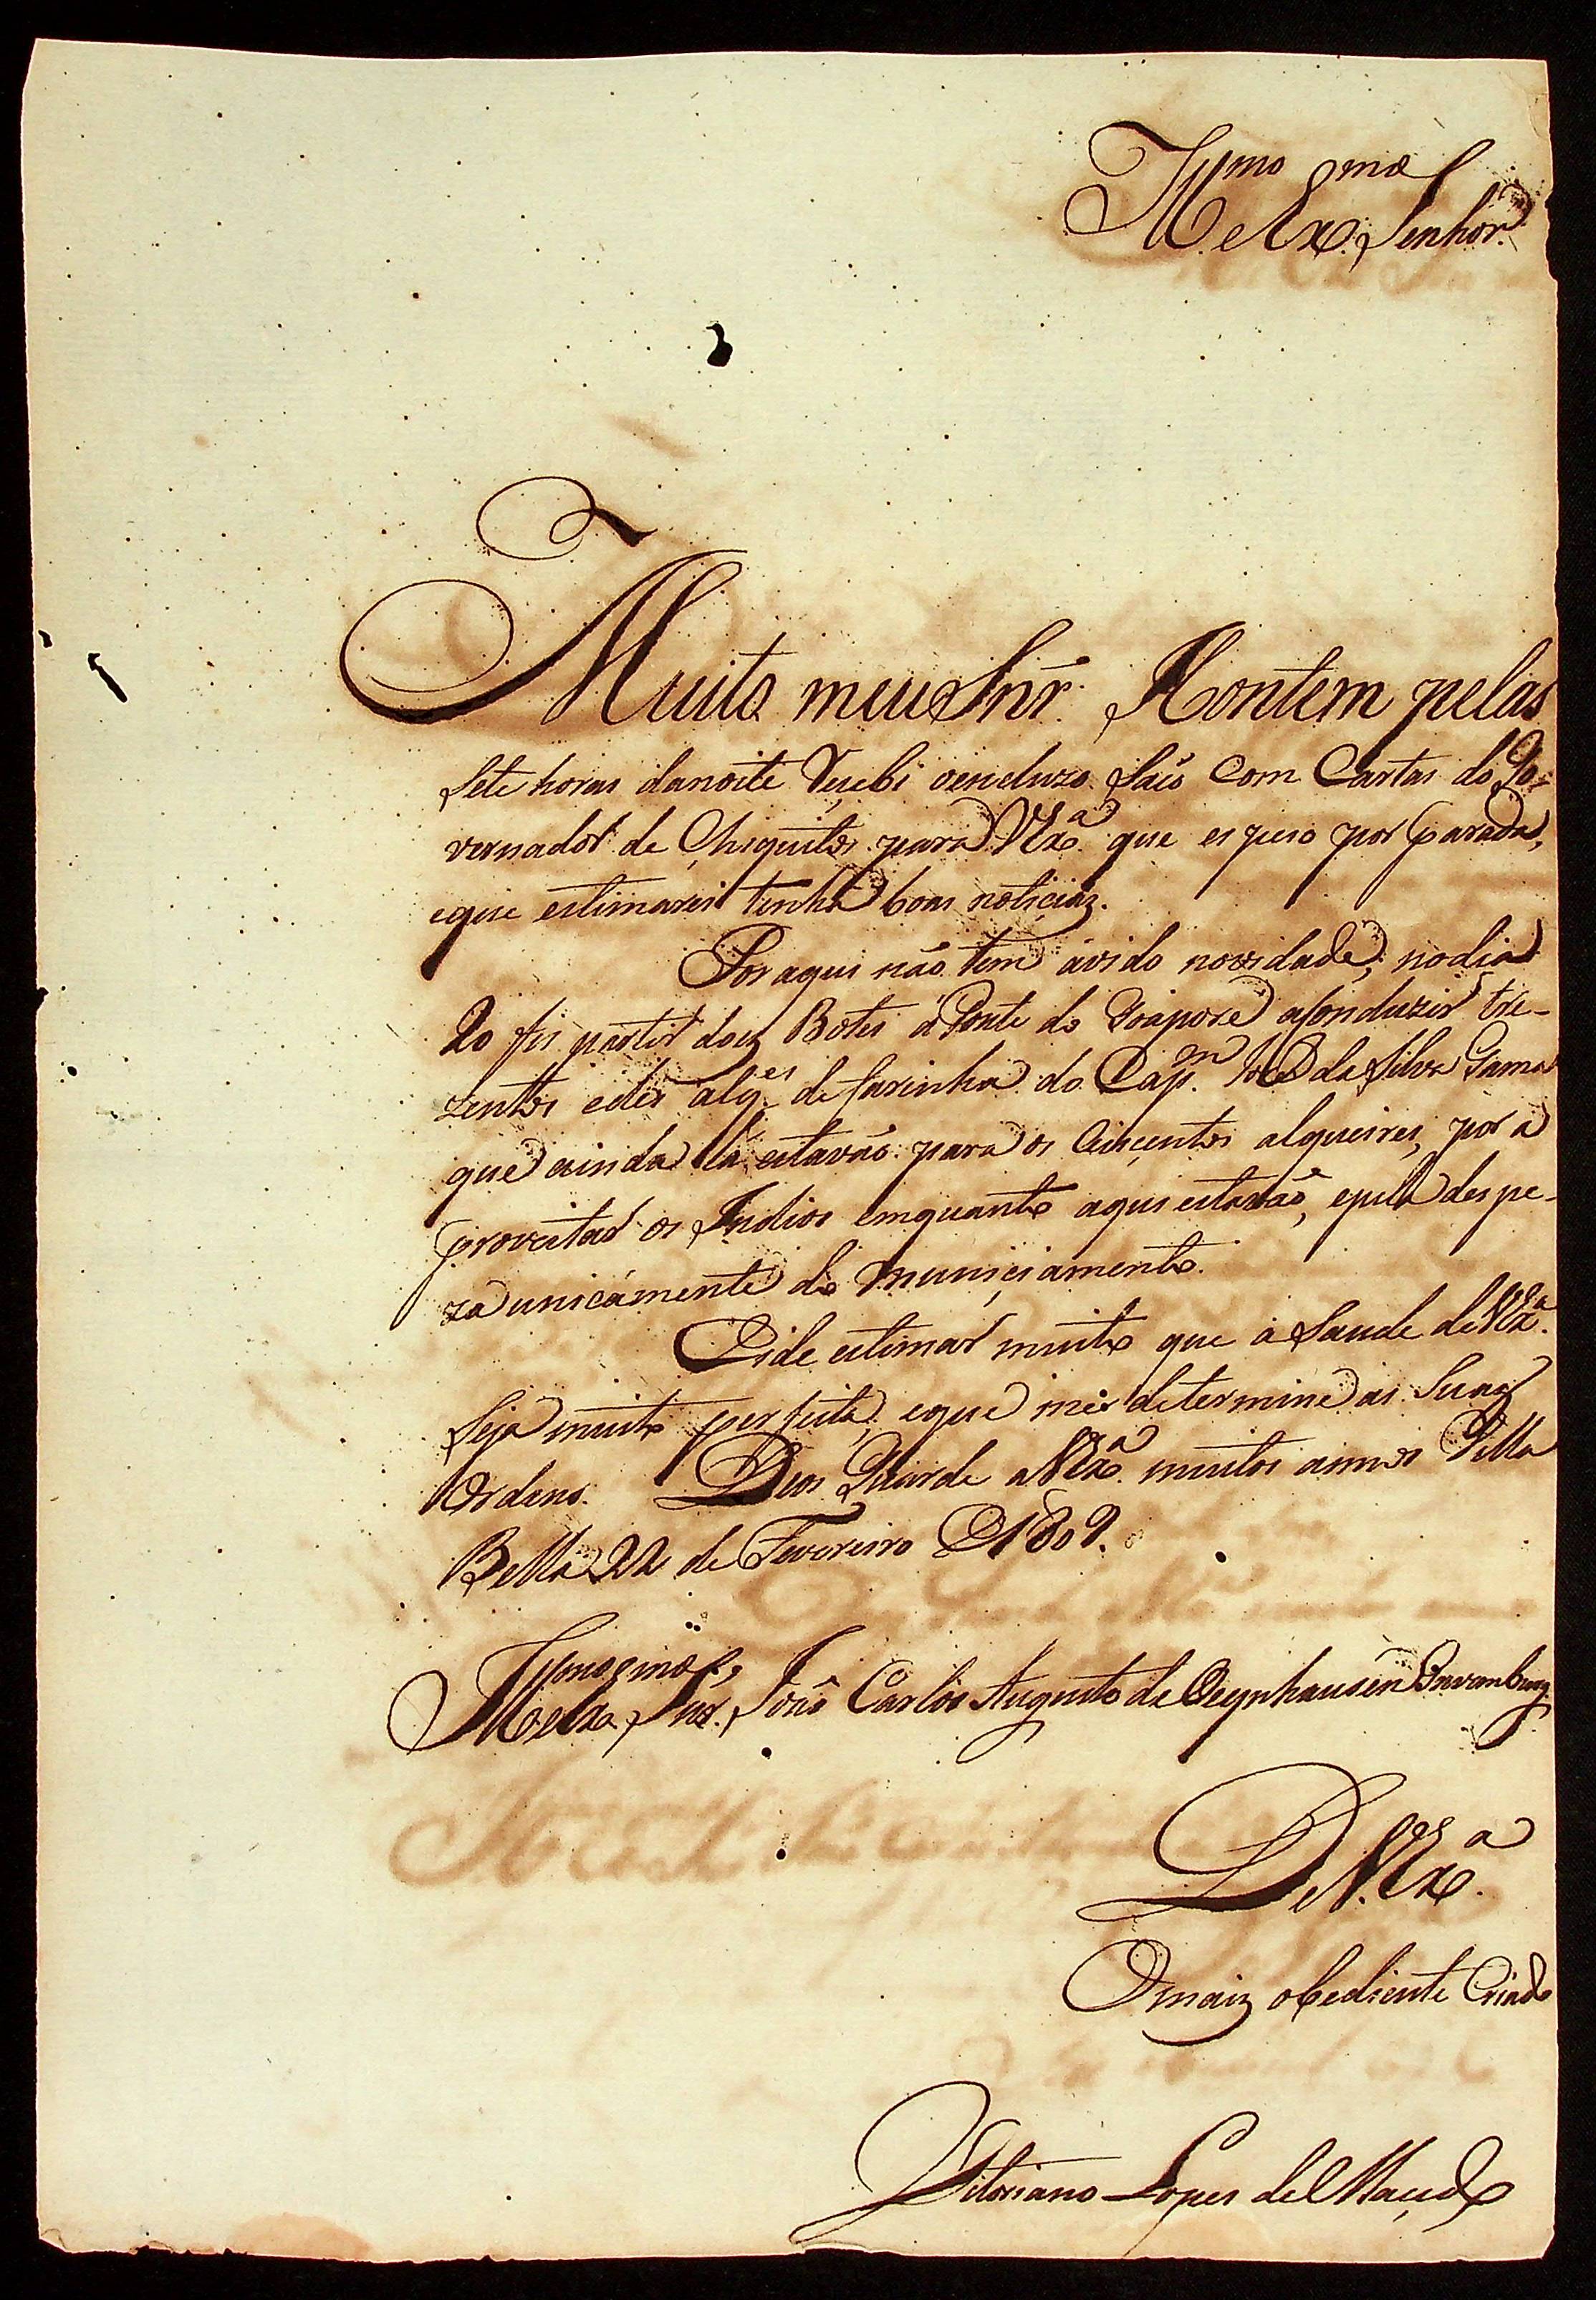 Ill.mo e Ex.mo Senhor.
Muito meu Snr. Hontem pelas
sete horas danoite Reçebi o Saco Com Cartas do Go-
vernador de Chiquitos para VEx.a que expeso por parada,
eque estimarei tenha boas notiçias.
Por aqui não tem ávido novidade; nodia
20 fis partir doiz Botes á Ponte do Goaporé aConduzir tre-
zentos edes alq.es de farinha do Cap.m Joze da Silva Gama
que ainda lá estavão para os alqueires, por a
proveitar os Indios emquanto aqui estavão, epela despe-
za unicámente do muniçiamento.
Eide estimar muito que a Saude de VEx.a
Seja muito perfeita, eque me determine as Suas
Ordens. Deos Guarde a VEx.a muitos annos Villa
Bella 22 de Fevereiro D 1809.
Ill.mo e Ex.mo Snr. João Carlos Augusto de Oeynhausen Gravemburg.
De V.Ex.a
Omaiz obediente Criado
Vitoriano Lopes de Maçedo